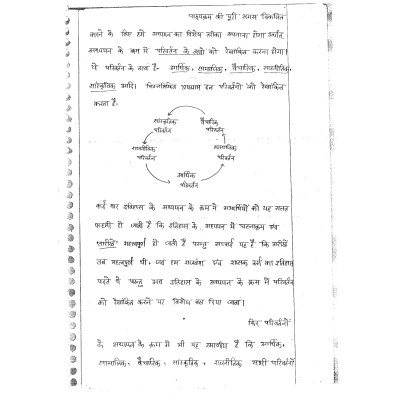 पाठ्यक्रम की पूरी समझ विकसित
करने के लिए हमें अध्ययन का विशेष तरीका अपनाना होगा अर्थात
अध्ययन के क्रम में परिवर्तन के तत्वों को रेखांकित करना होगा।
ये परिवर्तन के तत्व हैं- आर्थिक, सामाजिक, वैचारिक, राजनीतिक,
सांस्कृतिक आदि। निम्नलिखित इन परिवर्तनों को रेखांकित
करता है-
सांस्कृतिक परिवर्तन
वैचारिक परिवर्तन
राजनीतिक परिवर्तन
सामाजिक परिवर्तन
आर्थिक परिवर्तन
कई बार इतिहास के अध्ययन के क्रम में अभ्यर्थियों को यह गलत
फहमी हो जाती है कि इतिहास के अध्ययन में घटनाक्रम एवं
तारीखें महत्वपूर्ण हो जाती है परन्तु सच्चाई यह है कि तारीखें
तब महत्वपूर्ण थीं, जब हम राजवंश एवं शासक वर्ग का इतिहास
पढ़ते थे परन्तु अब इतिहास के अध्ययन के क्रम में परिवर्तन
को रेखांकित करने पर विशेष बल दिया जाता।
फिर परिवर्तनों
के अध्ययन के क्रम में भी यह है कि आर्थिक,
सामाजिक, वैचारिक, सांस्कृतिक, राजनीतिक सभी परिवर्तनों